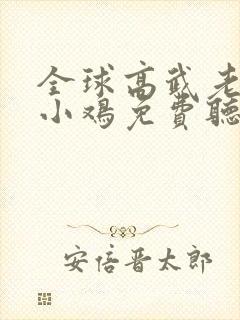 全球高武老
小鸡免費聽
安倍晋太郎